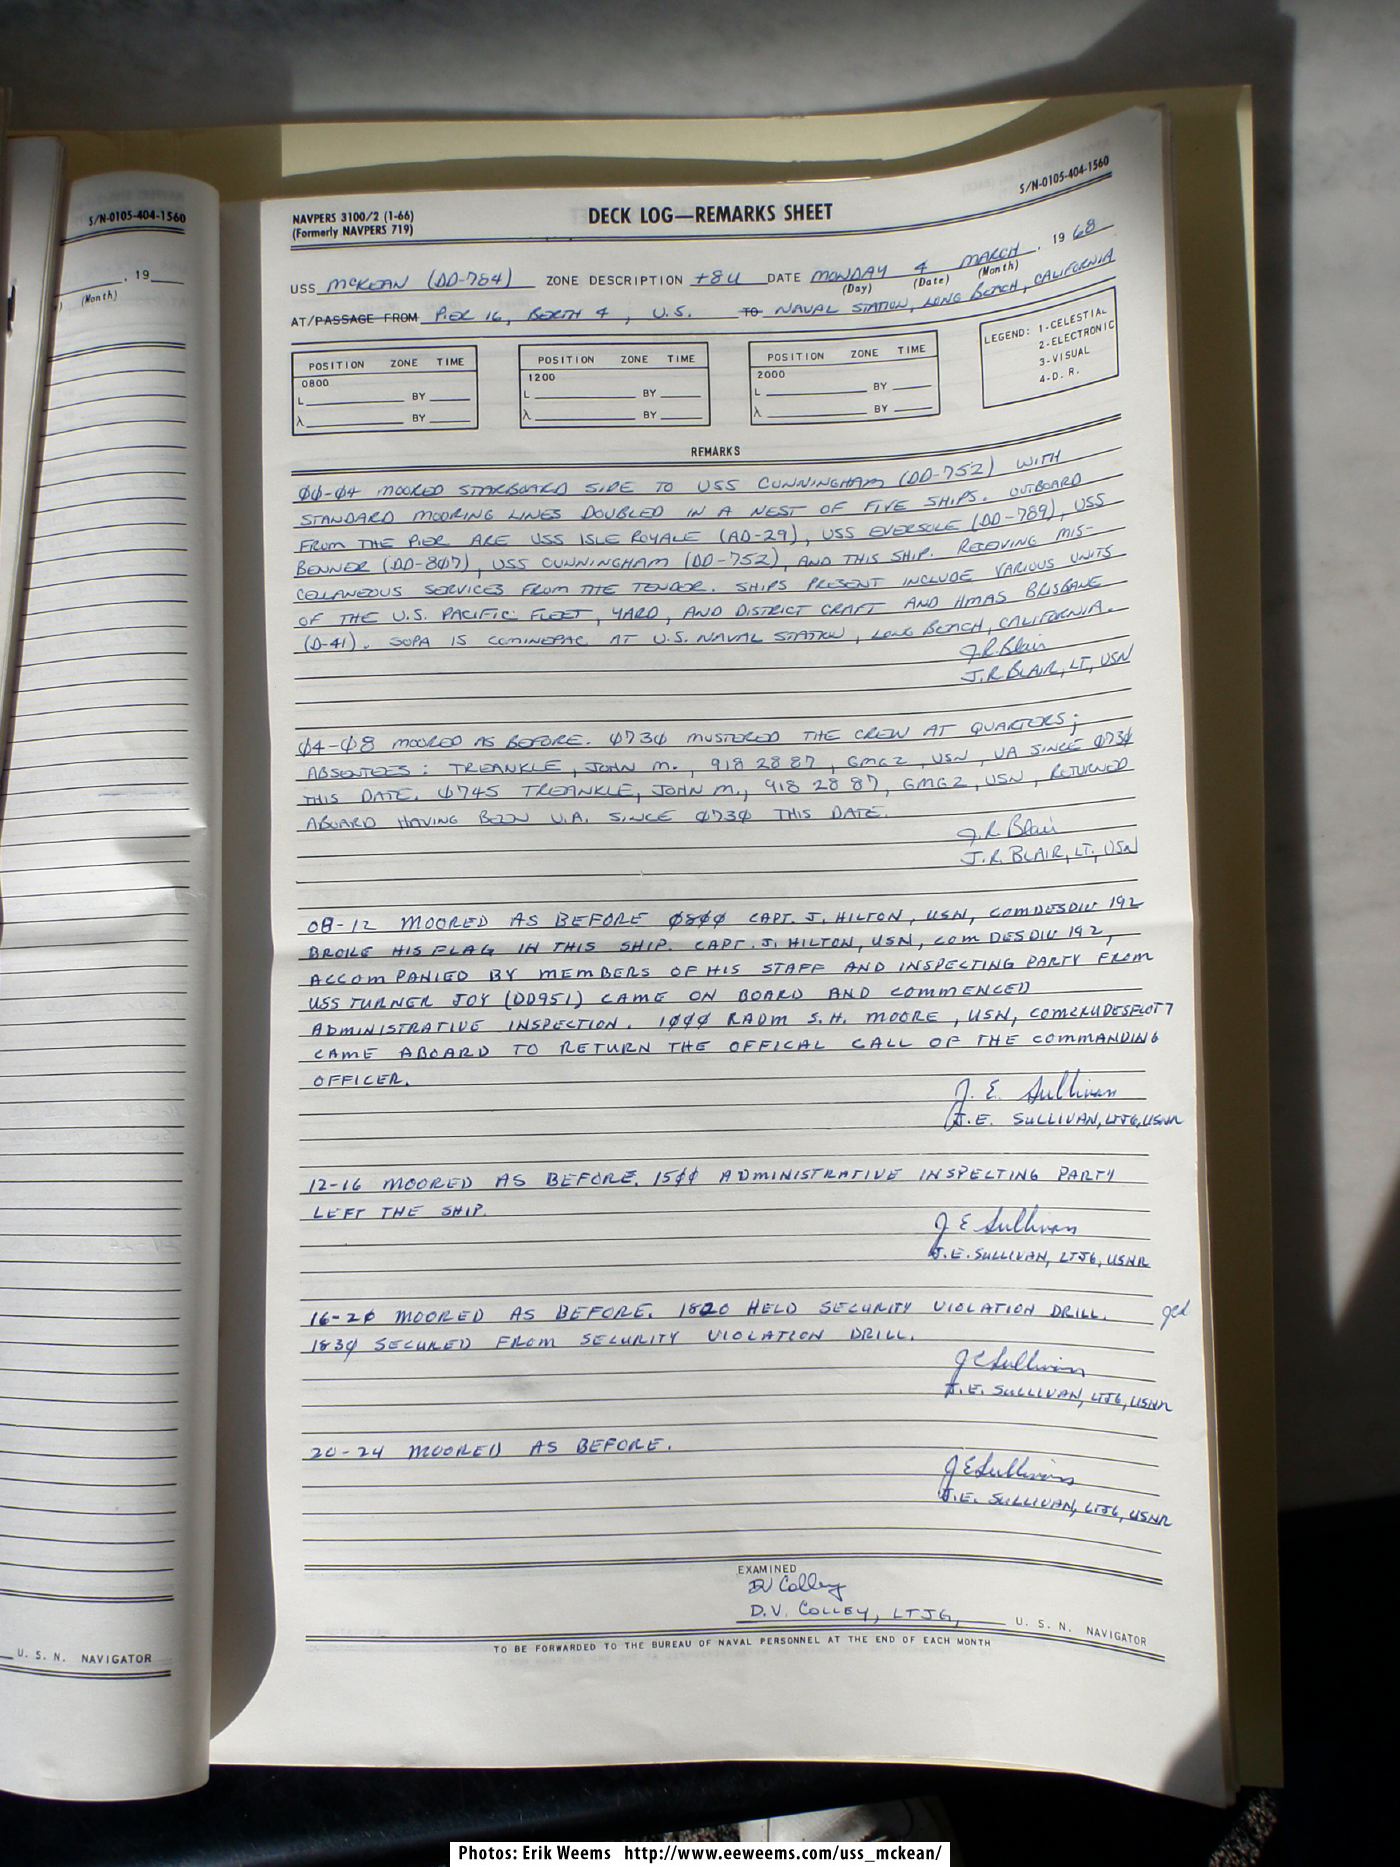 S/N-0105-404-1560
, 19
(Month)
U. S. N. NAVIGATOR
NAVPERS 3100/2 (1-66)
(Formerly NAVPERS 719)
DECK LOG—REMARKS SHEET
S/N-0105-404-1560
USS McKEAN (DD-784) ZONE DESCRIPTION +8U DATE MONDAY 4 MARCH, 1968
(Day) (Date) (Month)
AT/PASSAGE FROM PIER 16, BERTH 4, U.S. TO NAVAL STATION, LONG BEACH, CALIFORNIA
POSITION ZONE TIME
0800
L BY
λ BY
POSITION ZONE TIME
1200
L BY
λ BY
POSITION ZONE TIME
2000
L BY
λ BY
LEGEND: 1-CELESTIAL
2-ELECTRONIC
3-VISUAL
4-D. R.
REMARKS
00-04 MOORED STARBOARD SIDE TO USS CUNNINGHAM (DD-752) WITH
STANDARD MOORING LINES DOUBLED IN A NEST OF FIVE SHIPS. OUTBOARD
FROM THE PIER ARE USS ISLE ROYALE (AD-29), USS EVERSOLE (DD-789), USS
BENNER (DD-807), USS CUNNINGHAM (DD-752), AND THIS SHIP. RECEIVING MIS-
CELLANEOUS SERVICES FROM THE TENDER. SHIPS PRESENT INCLUDE VARIOUS UNITS
OF THE U.S. PACIFIC FLEET, YARD, AND DISTRICT CRAFT AND HMAS BRISBANE
(D-41). SOPA IS COMINEPAC AT U.S. NAVAL STATION, LONG BEACH, CALIFORNIA.
J.R. Blair
J.R. BLAIR, LT, USN
04-08 MOORED AS BEFORE. 0730 MUSTERED THE CREW AT QUARTERS;
ABSENTEES: TREANKLE, JOHN M., 918 28 87, GMG2, USN, UA SINCE 0730
THIS DATE. 0745 TREANKLE, JOHN M., 918 28 87, GMG2, USN, RETURNED
ABOARD HAVING BEEN U.A. SINCE 0730 THIS DATE.
J.R. Blair
J.R. BLAIR, LT, USN
08-12 MOORED AS BEFORE 0800 CAPT. J. HILTON, USN, COMDESDIV 192
BROKE HIS FLAG IN THIS SHIP. CAPT. J. HILTON, USN, COM DESDIV 192,
ACCOMPANIED BY MEMBERS OF HIS STAFF AND INSPECTING PARTY FROM
USS TURNER JOY (DD951) CAME ON BOARD AND COMMENCED
ADMINISTRATIVE INSPECTION. 1000 RADM S.H. MOORE, USN, COMCRUDESFLOT 7
CAME ABOARD TO RETURN THE OFFICAL CALL OF THE COMMANDING
OFFICER.
J. E. Sullivan
J.E. SULLIVAN, LTJG, USNR
12-16 MOORED AS BEFORE. 1500 ADMINISTRATIVE INSPECTING PARTY
LEFT THE SHIP.
J E Sullivan
J.E. SULLIVAN, LTJG, USNR
16-20 MOORED AS BEFORE. 1820 HELD SECURITY VIOLATION DRILL.
1830 SECURED FROM SECURITY VIOLATION DRILL.
J E Sullivan
J.E. SULLIVAN, LTJG, USNR
20-24 MOORED AS BEFORE.
J E Sullivan
J.E. SULLIVAN, LTJG, USNR
EXAMINED
DV Colley
D.V. COLLEY, LTJG, U. S. N. NAVIGATOR
TO BE FORWARDED TO THE BUREAU OF NAVAL PERSONNEL AT THE END OF EACH MONTH
Photos: Erik Weems http://www.eeweems.com/uss_mckean/